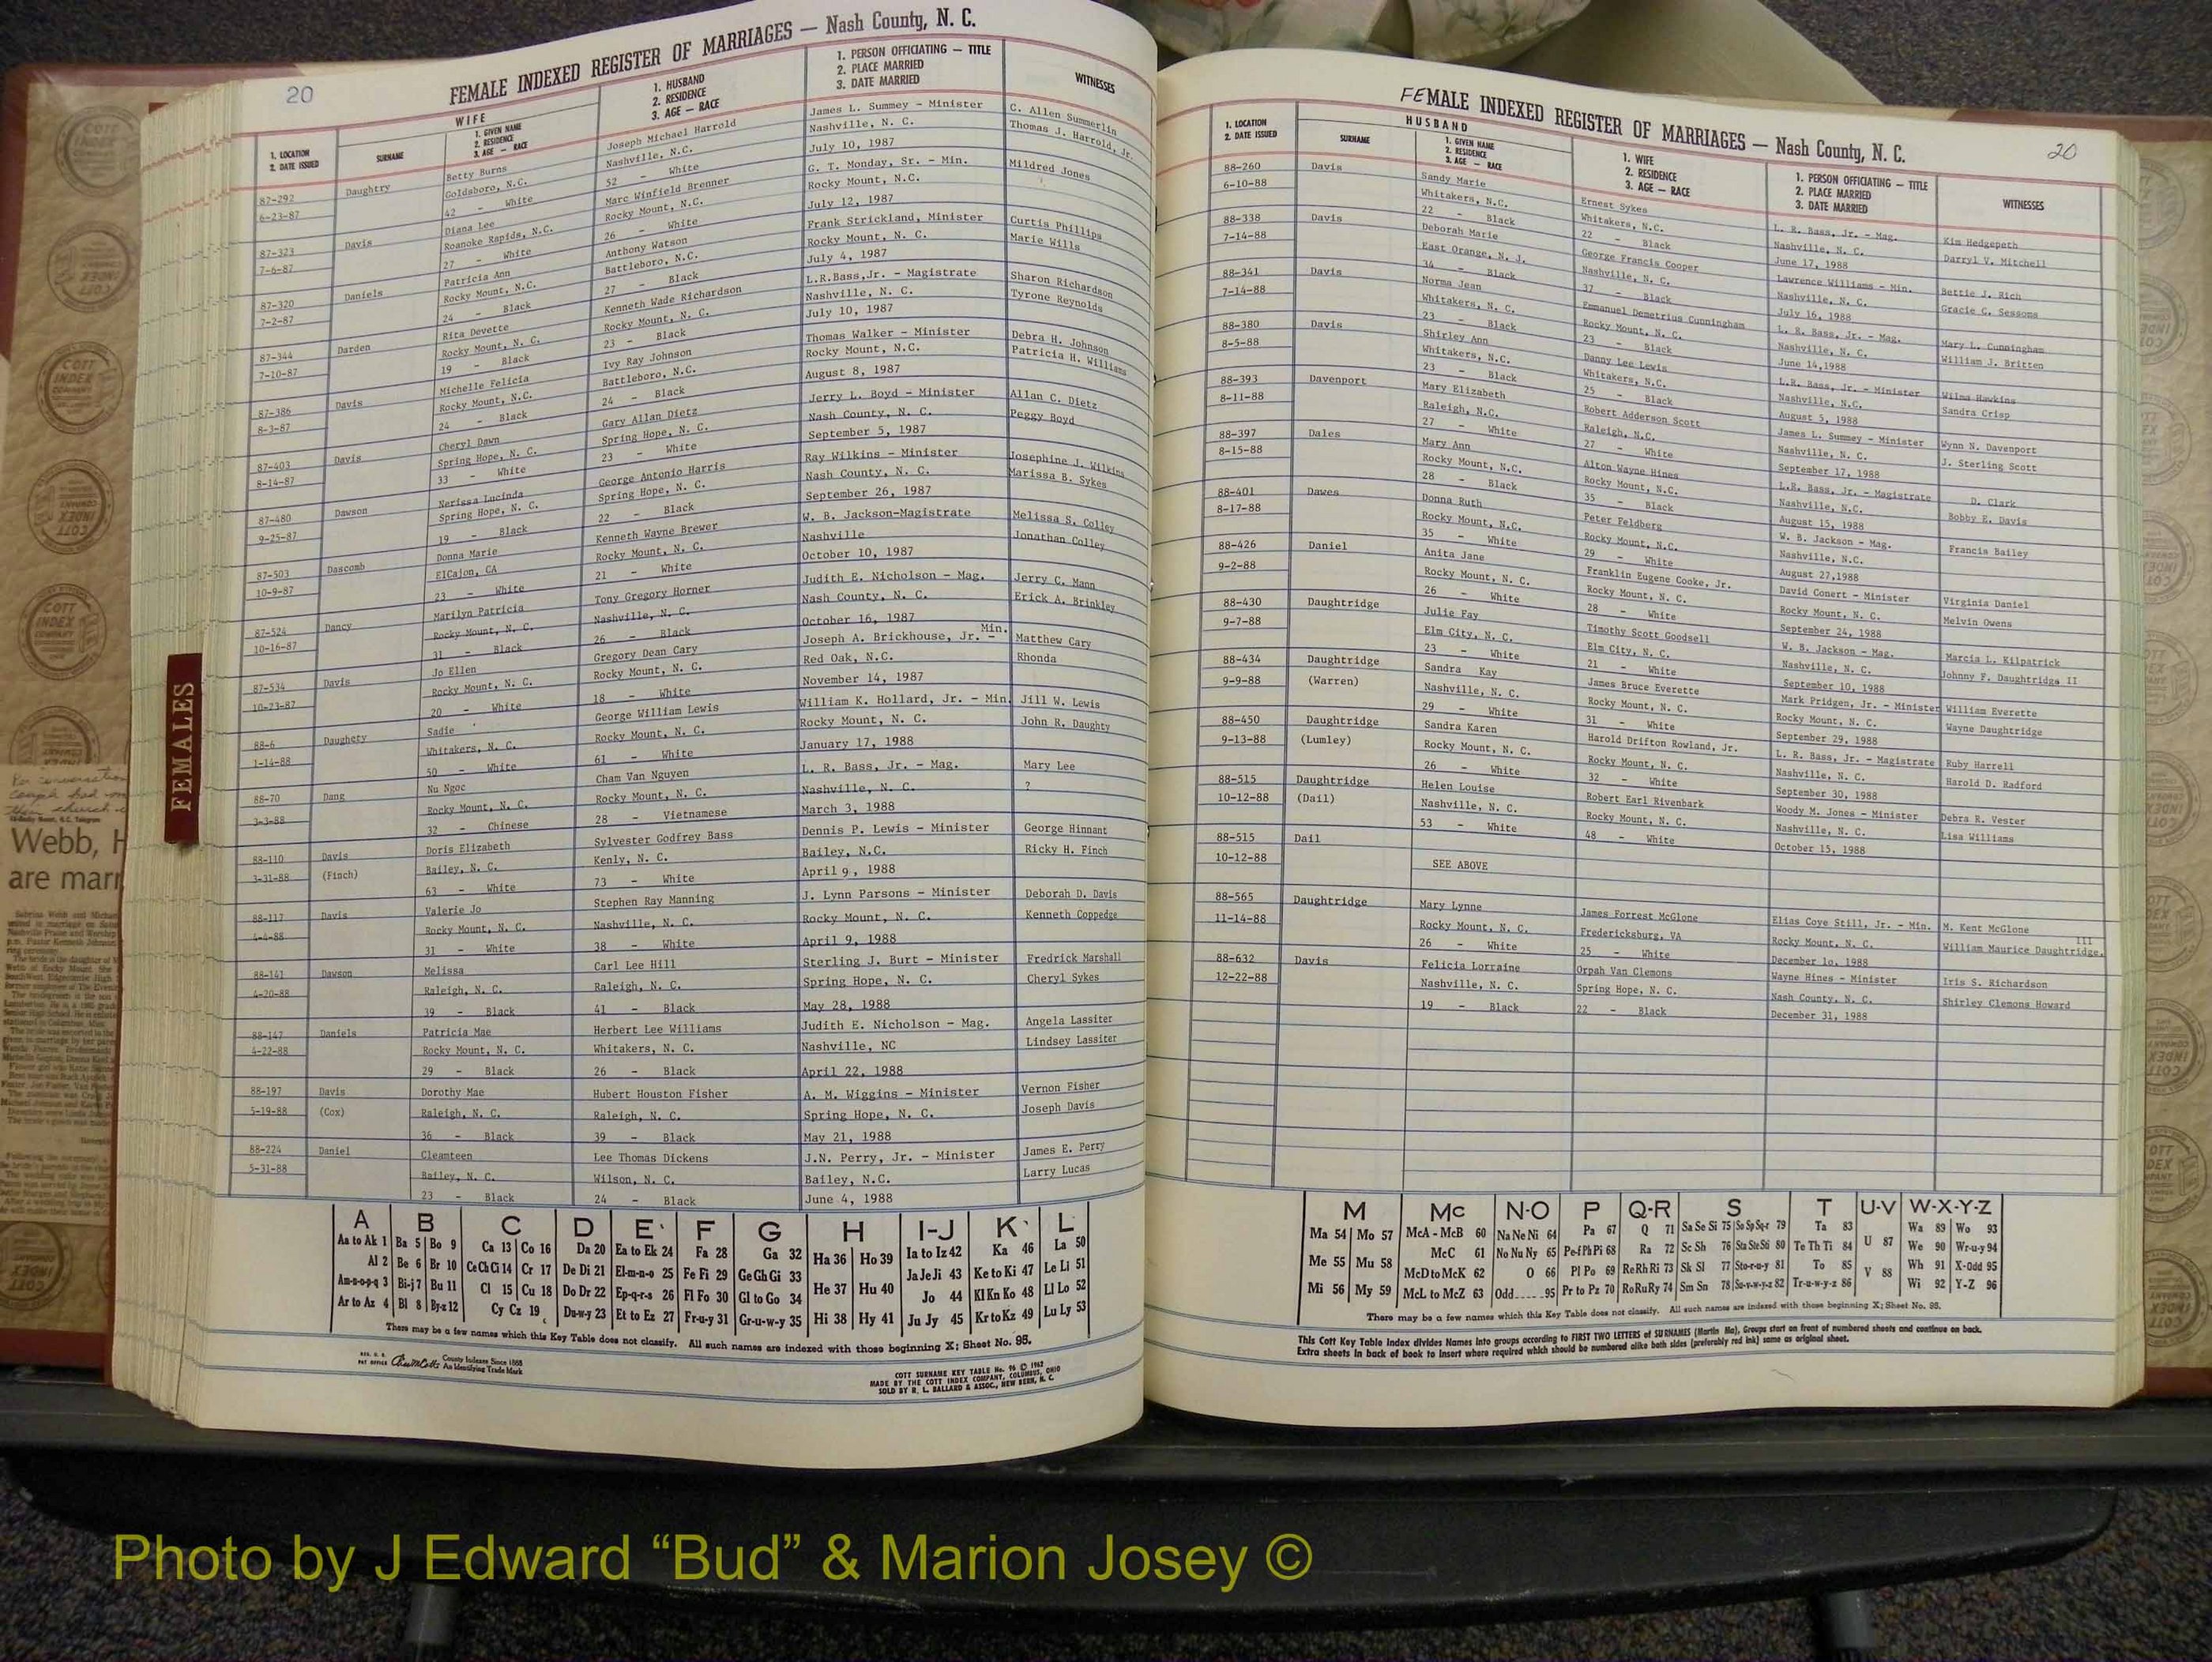 20
FEMALE INDEXED REGISTER OF MARRIAGES — Nash County, N. C.
1. LOCATION
2. DATE ISSUED
WIFE
SURNAME
1. GIVEN NAME
2. RESIDENCE
3. AGE — RACE
1. HUSBAND
2. RESIDENCE
3. AGE — RACE
1. PERSON OFFICIATING — TITLE
2. PLACE MARRIED
3. DATE MARRIED
WITNESSES
87-292 Daughtry Betty Burns Joseph Michael Harrold James L. Summey - Minister C. Allen Summerlin
6-23-87 Goldsboro, N.C. Nashville, N.C. Nashville, N. C. Thomas J. Harrold, Jr.
42 - White 52 - White July 10, 1987
87-323 Davis Diana Lee Marc Winfield Brenner G. T. Monday, Sr. - Min. Mildred Jones
7-6-87 Roanoke Rapids, N.C. Rocky Mount, N.C. Rocky Mount, N.C.
27 - White 26 - White July 12, 1987
87-320 Daniels Patricia Ann Anthony Watson Frank Strickland, Minister Curtis Phillips
7-2-87 Rocky Mount, N.C. Battleboro, N.C. Rocky Mount, N. C. Marie Wills
24 - Black 27 - Black July 4, 1987
87-344 Darden Rita Devette Kenneth Wade Richardson L.R.Bass,Jr. - Magistrate Sharon Richardson
7-10-87 Rocky Mount, N. C. Rocky Mount, N. C. Nashville, N. C. Tyrone Reynolds
19 - Black 23 - Black July 10, 1987
87-386 Davis Michelle Felicia Ivy Ray Johnson Thomas Walker - Minister Debra H. Johnson
8-3-87 Rocky Mount, N.C. Battleboro, N.C. Rocky Mount, N.C. Patricia H. Williams
24 - Black 24 - Black August 8, 1987
87-403 Davis Cheryl Dawn Gary Allan Dietz Jerry L. Boyd - Minister Allan C. Dietz
8-14-87 Spring Hope, N. C. Spring Hope, N. C. Nash County, N. C. Peggy Boyd
33 - White 23 - White September 5, 1987
87-480 Dawson Nerissa Lucinda George Antonio Harris Ray Wilkins - Minister Josephine J. Wilkins
9-25-87 Spring Hope, N. C. Spring Hope, N. C. Nash County, N. C. Marissa B. Sykes
19 - Black 22 - Black September 26, 1987
87-503 Dascomb Donna Marie Kenneth Wayne Brewer W. B. Jackson-Magistrate Melissa S. Colley
10-9-87 ElCajon, CA Rocky Mount, N. C. Nashville Jonathan Colley
23 - White 21 - White October 10, 1987
87-524 Dancy Marilyn Patricia Tony Gregory Horner Judith E. Nicholson - Mag. Jerry C. Mann
10-16-87 Rocky Mount, N. C. Nashville, N. C. Nash County, N. C. Erick A. Brinkley
31 - Black 26 - Black October 16, 1987
87-534 Davis Jo Ellen Gregory Dean Cary Joseph A. Brickhouse, Jr. - Min. Matthew Cary
10-23-87 Rocky Mount, N. C. Rocky Mount, N. C. Red Oak, N.C. Rhonda
20 - White 18 - White November 14, 1987
88-6 Daughety Sadie George William Lewis William K. Hollard, Jr. - Min. Jill W. Lewis
1-14-88 Whitakers, N. C. Rocky Mount, N. C. Rocky Mount, N. C. John R. Daughty
50 - White 61 - White January 17, 1988
88-70 Dang Nu Ngoc Cham Van Nguyen L. R. Bass, Jr. - Mag. Mary Lee
3-3-88 Rocky Mount, N. C. Rocky Mount, N. C. Nashville, N. C. ?
32 - Chinese 28 - Vietnamese March 3, 1988
88-110 Davis Doris Elizabeth Sylvester Godfrey Bass Dennis P. Lewis - Minister George Hinnant
3-31-88 (Finch) Bailey, N. C. Kenly, N. C. Bailey, N.C. Ricky H. Finch
63 - White 73 - White April 9, 1988
88-117 Davis Valerie Jo Stephen Ray Manning J. Lynn Parsons - Minister Deborah D. Davis
4-4-88 Rocky Mount, N. C. Nashville, N. C. Rocky Mount, N. C. Kenneth Coppedge
31 - White 38 - White April 9, 1988
88-141 Dawson Melissa Carl Lee Hill Sterling J. Burt - Minister Fredrick Marshall
4-20-88 Raleigh, N. C. Raleigh, N. C. Spring Hope, N. C. Cheryl Sykes
39 - Black 41 - Black May 28, 1988
88-147 Daniels Patricia Mae Herbert Lee Williams Judith E. Nicholson - Mag. Angela Lassiter
4-22-88 Rocky Mount, N. C. Whitakers, N. C. Nashville, NC Lindsey Lassiter
29 - Black 26 - Black April 22, 1988
88-197 Davis Dorothy Mae Hubert Houston Fisher A. M. Wiggins - Minister Vernon Fisher
5-19-88 (Cox) Raleigh, N. C. Raleigh, N. C. Spring Hope, N. C. Joseph Davis
36 - Black 39 - Black May 21, 1988
88-224 Daniel Cleamteen Lee Thomas Dickens J.N. Perry, Jr. - Minister James E. Perry
5-31-88 Bailey, N. C. Wilson, N. C. Bailey, N.C. Larry Lucas
23 - Black 24 - Black June 4, 1988
A B C D E F G H I-J K L
Aa to Ak 1 Ba 5 Bo 9 Ca 13 Co 16 Da 20 Ea to Ek 24 Fa 28 Ga 32 Ha 36 Ho 39 Ia to Iz 42 Ka 46 La 50
Al 2 Be 6 Br 10 Ce Ch Ci 14 Cr 17 De Di 21 El-m-n-o 25 Fe Fi 29 Ge Gh Gi 33 He 37 Hu 40 Ja Je Ji 43 Ke to Ki 47 Le Li 51
Am-n-o-p-q 3 Bi-j 7 Bu 11 Cl 15 Cu 18 Do Dr 22 Ep-q-r-s 26 Fl Fo 30 Gl to Go 34 Jo 44 Kl Kn Ko 48 Ll Lo 52
Ar to Az 4 Bl 8 By-z 12 Cy Cz 19 Du-w-y 23 Et to Ez 27 Fr-u-y 31 Gr-u-w-y 35 Hi 38 Hy 41 Ju Jy 45 Kr to Kz 49 Lu Ly 53
There may be a few names which this Key Table does not classify. All such names are indexed with those beginning X; Sheet No. 95.
County Indexes Since 1888
An Identifying Trade Mark
COTT SURNAME KEY TABLE No. 96 © 1962
MADE BY THE COTT INDEX COMPANY, COLUMBUS, OHIO
SOLD BY R. L. BALLARD & ASSOC., NEW BERN, N. C.
FEMALES
FEMALE INDEXED REGISTER OF MARRIAGES — Nash County, N. C.
20
1. LOCATION
2. DATE ISSUED
HUSBAND
SURNAME
1. GIVEN NAME
2. RESIDENCE
3. AGE — RACE
1. WIFE
2. RESIDENCE
3. AGE — RACE
1. PERSON OFFICIATING — TITLE
2. PLACE MARRIED
3. DATE MARRIED
WITNESSES
88-260 Davis Sandy Marie Ernest Sykes L. R. Bass, Jr. - Mag. Kim Hedgepeth
6-10-88 Whitakers, N.C. Whitakers, N.C. Nashville, N. C. Darryl V. Mitchell
22 - Black 22 - Black June 17, 1988
88-338 Davis Deborah Marie George Francis Cooper Lawrence Williams - Min. Bettie J. Rich
7-14-88 East Orange, N. J. Nashville, N. C. Nashville, N. C. Gracie C. Sessoms
34 - Black 37 - Black July 16, 1988
88-341 Davis Norma Jean Emmanuel Demetrius Cunningham L. R. Bass, Jr. - Mag. Mary L. Cunningham
7-14-88 Whitakers, N. C. Rocky Mount, N. C. Nashville, N. C. William J. Britten
23 - Black 23 - Black June 14,1988
88-380 Davis Shirley Ann Danny Lee Lewis L.R. Bass, Jr. - Minister Wilma Hawkins
8-5-88 Whitakers, N.C. Whitakers, N.C. Nashville, N.C. Sandra Crisp
23 - Black 25 - Black August 5, 1988
88-393 Davenport Mary Elizabeth Robert Adderson Scott James L. Summey - Minister Wynn N. Davenport
8-11-88 Raleigh, N.C. Raleigh, N.C. Nashville, N. C. J. Sterling Scott
27 - White 27 - White September 17, 1988
88-397 Dales Mary Ann Alton Wayne Hines L.R. Bass, Jr. - Magistrate D. Clark
8-15-88 Rocky Mount, N.C. Rocky Mount, N.C. Nashville, N.C. Bobby E. Davis
28 - Black 35 - Black August 15, 1988
88-401 Dawes Donna Ruth Peter Feldberg W. B. Jackson - Mag. Francis Bailey
8-17-88 Rocky Mount, N.C. Rocky Mount, N.C. Nashville, N.C.
35 - White 29 - White August 27,1988
88-426 Daniel Anita Jane Franklin Eugene Cooke, Jr. David Conert - Minister Virginia Daniel
9-2-88 Rocky Mount, N. C. Rocky Mount, N. C. Rocky Mount, N. C. Melvin Owens
26 - White 28 - White September 24, 1988
88-430 Daughtridge Julie Fay Timothy Scott Goodsell W. B. Jackson - Mag. Marcia L. Kilpatrick
9-7-88 Elm City, N. C. Elm City, N. C. Nashville, N. C. Johnny F. Daughtridge II
23 - White 21 - White September 10, 1988
88-434 Daughtridge Sandra Kay James Bruce Everette Mark Pridgen, Jr. - Minister William Everette
9-9-88 (Warren) Nashville, N. C. Rocky Mount, N. C. Rocky Mount, N. C. Wayne Daughtridge
29 - White 31 - White September 29, 1988
88-450 Daughtridge Sandra Karen Harold Drifton Rowland, Jr. L. R. Bass, Jr. - Magistrate Ruby Harrell
9-13-88 (Lumley) Rocky Mount, N. C. Rocky Mount, N. C. Nashville, N. C. Harold D. Radford
26 - White 32 - White September 30, 1988
88-515 Daughtridge Helen Louise Robert Earl Rivenbark Woody M. Jones - Minister Debra R. Vester
10-12-88 (Dail) Nashville, N. C. Rocky Mount, N. C. Nashville, N. C. Lisa Williams
53 - White 48 - White October 15, 1988
88-515 Dail
10-12-88 SEE ABOVE
88-565 Daughtridge Mary Lynne James Forrest McGlone Elias Cove Still, Jr. - Min. M. Kent McGlone
11-14-88 Rocky Mount, N. C. Fredericksburg, VA Rocky Mount, N. C. William Maurice Daughtridge, III
26 - White 25 - White December 10, 1988
88-632 Davis Felicia Lorraine Orpah Van Clemons Wayne Hines - Minister Iris S. Richardson
12-22-88 Nashville, N. C. Spring Hope, N. C. Nash County, N. C. Shirley Clemons Howard
19 - Black 22 - Black December 31, 1988
M Mc N-O P Q-R S T U-V W-X-Y-Z
Ma 54 Mo 57 McA - McB 60 Na Ne Ni 64 Pa 67 Q 71 Sa Se Si 75 So Sp Sq-r 79 Ta 83 U 87 Wa 89 Wo 93
Me 55 Mu 58 McC 61 No Nu Ny 65 Pe-f Ph Pi 68 Ra 72 Sc Sh 76 Sta Ste Sti 80 Te Th Ti 84 We 90 Wr-u-y 94
McD to McK 62 O 66 Pl Po 69 Re Rh Ri 73 Sk Sl 77 Sto-r-u-y 81 To 85 V 88 Wh 91 X-Odd 95
Mi 56 My 59 McL to McZ 63 Odd 95 Pr to Pz 70 Ro Ru Ry 74 Sm Sn 78 Su-v-w-y-z 82 Tr-u-w-y-z 86 Wi 92 Y-Z 96
There may be a few names which this Key Table does not classify. All such names are indexed with those beginning X; Sheet No. 95.
This Cott Key Table Index divides Names into groups according to FIRST TWO LETTERS of SURNAMES (Martin Ma), Groups start on front of numbered sheets and continue on back.
Extra sheets in back of book to insert where required which should be numbered alike both sides (preferably red ink) same as original sheet.
Webb, H
are marr
Photo by J Edward “Bud” & Marion Josey ©